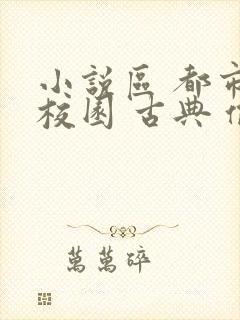 小說區 都市
校園 古典
萬萬碎